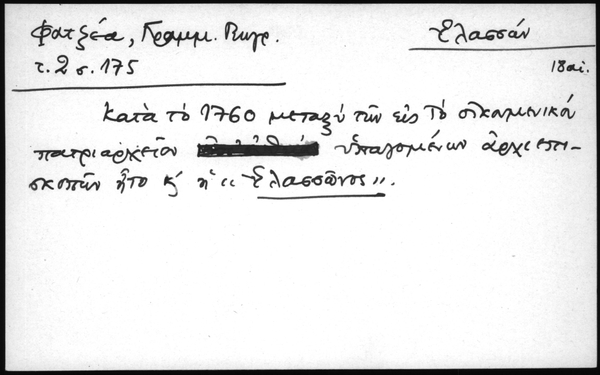 Φατζέα, Γραμμ. Πιγρ.
Ἐλασσών
τ. 2 σ. 175
18 αἰ.
Κατὰ τὸ 1760 μεταξὺ τῶν εἰς τὸ οἰκουμενικόν
πατριαρχεῖον ὑπαγομένων ἀρχιεπι-
σκοπῶν ἦτο κ' ἡ «Ἐλασσῶνος».